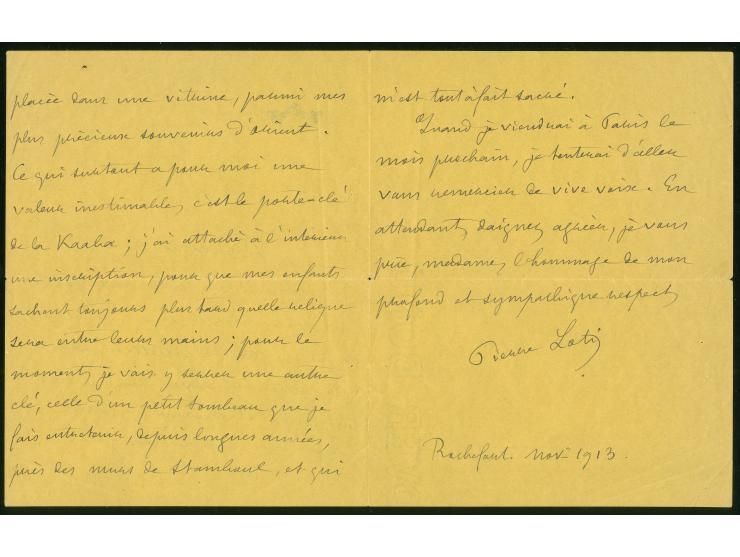 placée dans une vitrine, parmi mes
plus précieux souvenirs d'Orient.
Ce qui surtout a pour moi une
valeur inestimable, c'est le porte-clé
de la Kaaba ; j'ai attaché à l'intérieur
une inscription, pour que mes enfants
sachent toujours plus tard quelle relique
sera entre leurs mains ; pour le
moment, je vais y serrer une autre
clé, celle d'un petit tombeau que je
fais entretenir, depuis longues années,
près des murs de Stamboul, et qui
m'est tout à fait sacré.
Quand je viendrai à Paris le
mois prochain, je tenterai d'aller
vous remercier de vive voix. En
attendant, daignez agréer, je vous
prie, madame, l'hommage de mon
profond et sympathique respect
Pierre Loti
Rochefort. nov. 1913.